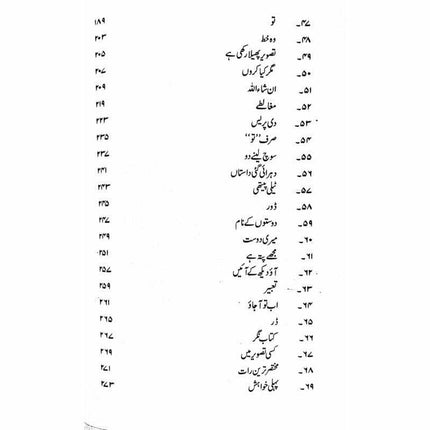 ۴۷۔ تو ۱۸۹
۴۸۔ وہ خط ۲۰۳
۴۹۔ تصویر پھیلا رکھی ہے ۲۰۵
۵۰۔ مگر کیا کروں ۲۰۷
۵۱۔ ان شاء اللہ ۲۰۹
۵۲۔ مغالطے ۲۱۹
۵۳۔ دی پریس ۲۲۳
۵۴۔ صرف ’’تو‘‘ ۲۳۵
۵۵۔ سوچ لینے دو ۲۳۷
۵۶۔ دہرائی گئی داستاں ۲۴۱
۵۷۔ ٹیلی پیتھی ۲۴۳
۵۸۔ ڈور ۲۴۵
۵۹۔ دوستوں کے نام ۲۴۷
۶۰۔ میری دوست ۲۴۹
۶۱۔ مجھے پتہ ہے ۲۵۱
۶۲۔ آؤ دیکھ کے آئیں ۲۵۷
۶۳۔ تعبیر ۲۵۹
۶۴۔ اب تو آ جاؤ ۲۶۱
۶۵۔ ڈر ۲۶۵
۶۶۔ کتاب نگر ۲۶۷
۶۷۔ کسی تصویر میں ۲۶۹
۶۸۔ مختصر ترین رات ۲۷۱
۶۹۔ پہلی خواہش ۲۷۳